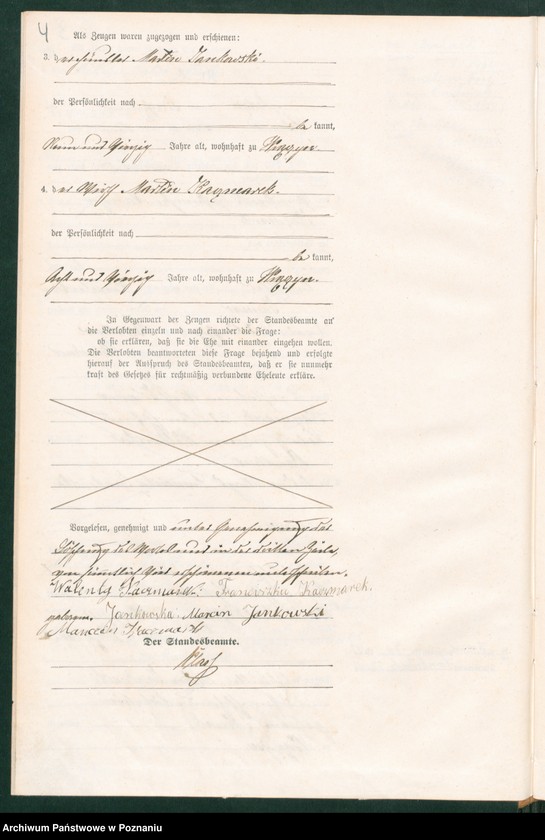 4
Als Zeugen waren zugezogen und erschienen:
3. der Martin Jankowski.
der Persönlichkeit nach
be kannt,
Neun und Vierzig Jahre alt, wohnhaft zu
4. der Wirth Martin Kaczmarek.
der Persönlichkeit nach
be kannt,
Acht und Vierzig Jahre alt, wohnhaft zu
In Gegenwart der Zeugen richtete der Standesbeamte an
die Verlobten einzeln und nach einander die Frage:
ob sie erklären, daß sie die Ehe mit einander eingehen wollen.
Die Verlobten beantworteten diese Frage bejahend und erfolgte
hierauf der Ausspruch des Standesbeamten, daß er sie nunmehr
kraft des Gesetzes für rechtmäßig verbundene Eheleute erkläre.
Vorgelesen, genehmigt und unter Genehmigung der
Löschung des Wortes und in der dritten Zeile
von unterschrieben.
Walenty Kaczmarek. Franciszka Kaczmarek.
geborene Jankowska. Marcin Jankowski
Marcin Kaczmarek
Der Standesbeamte.
Archiwum Państwowe w Poznaniu